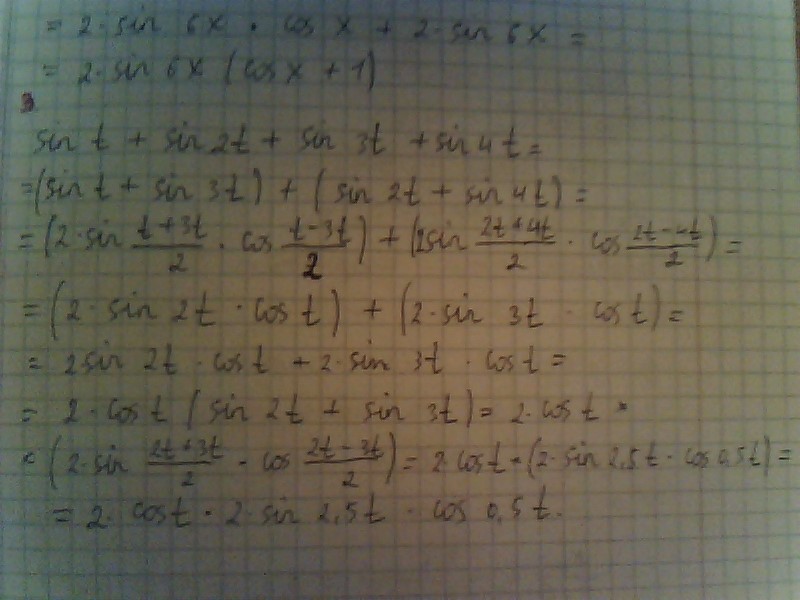 = 2 · sin 6x · cos x + 2 · sin 6x =
= 2 · sin 6x (cos x + 1)
3
sin t + sin 2t + sin 3t + sin 4t =
= (sin t + sin 3t) + (sin 2t + sin 4t) =
= (2 · sin (t+3t)/2 · cos (t-3t)/2) + (2sin (2t+4t)/2 · cos (2t-4t)/2) =
= (2 · sin 2t · cos t) + (2 · sin 3t · cos t) =
= 2sin 2t · cos t + 2 · sin 3t · cos t =
= 2 · cos t (sin 2t + sin 3t) = 2 · cos t ×
× (2 · sin (2t+3t)/2 · cos (2t-3t)/2) = 2 · cos t · (2 · sin 2,5t · cos 0,5t) =
= 2 · cos t · 2 · sin 2,5t · cos 0,5t.